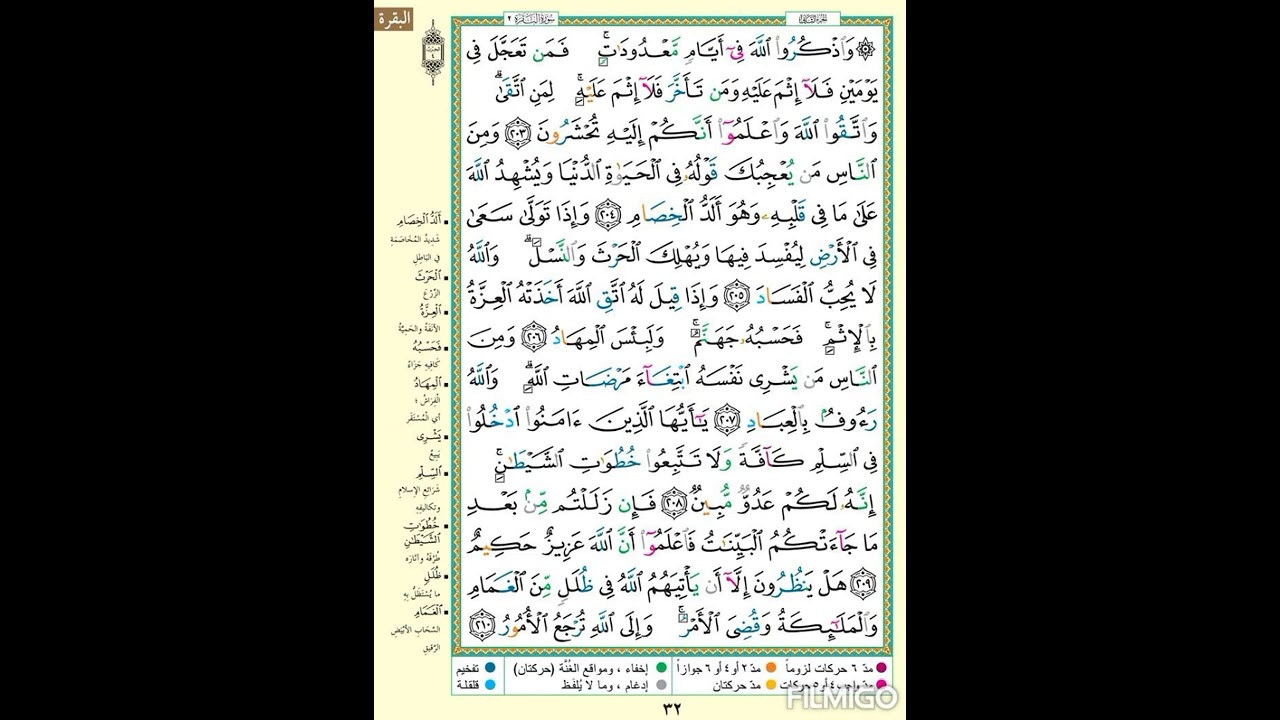 البقرة
سورة البقرة ٢
الجزء الثاني
۞ وَٱذْكُرُوا۟ ٱللَّهَ فِىٓ أَيَّامٍ مَّعْدُودَٰتٍ ۚ فَمَن تَعَجَّلَ فِى
يَوْمَيْنِ فَلَآ إِثْمَ عَلَيْهِ وَمَن تَأَخَّرَ فَلَآ إِثْمَ عَلَيْهِ ۚ لِمَنِ ٱتَّقَىٰ ۗ
وَٱتَّقُوا۟ ٱللَّهَ وَٱعْلَمُوٓا۟ أَنَّكُمْ إِلَيْهِ تُحْشَرُونَ ٢٠٣ وَمِنَ
ٱلنَّاسِ مَن يُعْجِبُكَ قَوْلُهُۥ فِى ٱلْحَيَوٰةِ ٱلدُّنْيَا وَيُشْهِدُ ٱللَّهَ
عَلَىٰ مَا فِى قَلْبِهِۦ وَهُوَ أَلَدُّ ٱلْخِصَامِ ٢٠٤ وَإِذَا تَوَلَّىٰ سَعَىٰ
فِى ٱلْأَرْضِ لِيُفْسِدَ فِيهَا وَيُهْلِكَ ٱلْحَرْثَ وَٱلنَّسْلَ ۗ وَٱللَّهُ
لَا يُحِبُّ ٱلْفَسَادَ ٢٠٥ وَإِذَا قِيلَ لَهُ ٱتَّقِ ٱللَّهَ أَخَذَتْهُ ٱلْعِزَّةُ
بِٱلْإِثْمِ ۚ فَحَسْبُهُۥ جَهَنَّمُ ۚ وَلَبِئْسَ ٱلْمِهَادُ ٢٠٦ وَمِنَ
ٱلنَّاسِ مَن يَشْرِى نَفْسَهُ ٱبْتِغَآءَ مَرْضَاتِ ٱللَّهِ ۗ وَٱللَّهُ
رَءُوفٌۢ بِٱلْعِبَادِ ٢٠٧ يَٰٓأَيُّهَا ٱلَّذِينَ ءَامَنُوا۟ ٱدْخُلُوا۟
فِى ٱلسِّلْمِ كَآفَّةً وَلَا تَتَّبِعُوا۟ خُطُوَٰتِ ٱلشَّيْطَٰنِ ۚ
إِنَّهُۥ لَكُمْ عَدُوٌّ مُّبِينٌ ٢٠٨ فَإِن زَلَلْتُم مِّنۢ بَعْدِ
مَا جَآءَتْكُمُ ٱلْبَيِّنَٰتُ فَٱعْلَمُوٓا۟ أَنَّ ٱللَّهَ عَزِيزٌ حَكِيمٌ
٢٠٩ هَلْ يَنظُرُونَ إِلَّآ أَن يَأْتِيَهُمُ ٱللَّهُ فِى ظُلَلٍ مِّنَ ٱلْغَمَامِ
وَٱلْمَلَٰٓئِكَةُ وَقُضِىَ ٱلْأَمْرُ ۚ وَإِلَى ٱللَّهِ تُرْجَعُ ٱلْأُمُورُ ٢١٠
أَلَدُّ ٱلْخِصَامِ
شَدِيدُ المُخَاصَمَةِ
فِي البَاطِلِ
ٱلْحَرْثَ
الزَّرْعَ
ٱلْعِزَّةُ
الأَنَفَةُ والحَمِيَّةُ
فَحَسْبُهُ
كَافِيهِ جَزَاءً
ٱلْمِهَادُ
الْفِرَاشُ ؛
أي المُسْتَقَر
يَشْرِى
يَبِيعُ
ٱلسِّلْمِ
شَرَائِعِ الإسلامِ
وتكاليفِهِ
خُطُوَٰتِ
ٱلشَّيْطَٰنِ
طُرُقَهُ وآثارَه
ظُلَلٍ
ما يُسْتَظَلُّ بِهِ
ٱلْغَمَامِ
السَّحَابِ الأبْيَضِ
الرَّقِيقِ
مدّ ٦ حركات لزوماً مدّ ٢ أو ٤ أو ٦ جوازاً إخفاء ، ومواقع الغُنَّة (حركتان) تفخيم
مدّ واجب ٤ أو ٥ حركات مدّ حركتان إدغام ، وما لا يُلفَظ قلقلة
FILMIGO
٣٢